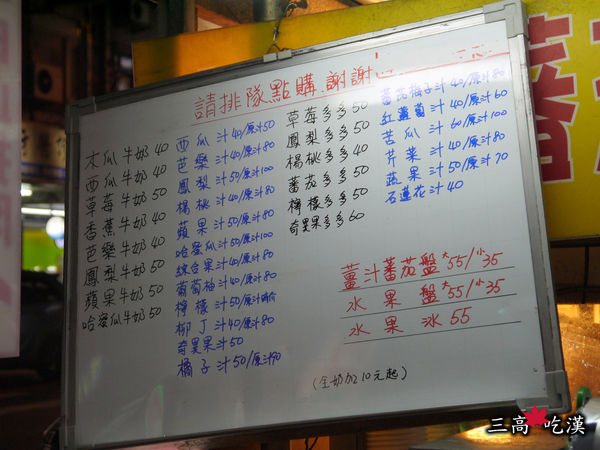 請排隊點購.謝謝
木瓜牛奶 40
西瓜牛奶 40
草莓牛奶 50
香蕉牛奶 40
芭樂牛奶 40
鳳梨牛奶 50
蘋果牛奶 50
哈蜜瓜牛奶 50
西瓜汁 40/原汁50
芭樂汁 40/原汁80
鳳梨汁 50/原汁100
楊桃汁 40/原汁80
蘋果汁 50/原汁80
哈蜜瓜汁 50/原汁100
綜合果汁 40/原汁80
葡萄柚汁 40/原汁80
檸檬汁 50/原汁
柳丁汁 40/原汁80
奇異果汁 50
橘子汁 50/原汁90
草莓多多 50
鳳梨多多 50
楊桃多多 40
蕃茄多多 50
檸檬多多 50
奇異果多多 60
蕃茄梅子汁 40/原汁80
紅蘿蔔汁 40/原汁60
苦瓜汁 60/原汁100
芹菜汁 40/原汁80
蔬果汁 50/原汁70
石蓮花汁 40
薑汁蕃茄盤 大55/小35
水果盤 大55/小35
水果冰 55
(全奶加10元起)
三高 吃漢